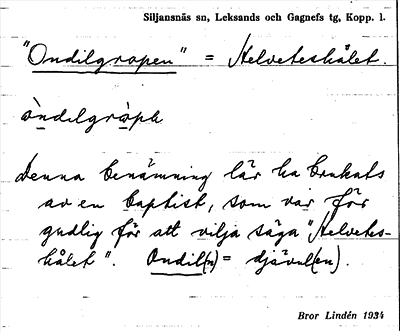 Siljansnäs sn, Leksands och Gagnefs tg, Kopp. l.
"Ondilgropen" = Helveteshålet.
òndilgròpa
Denna benämning lär ha brukats
av en baptist, som var för
gudlig för att vilja säga "Helvetes-
hålet". Ondil(n) = djävul(en).
Bror Lindén 1934